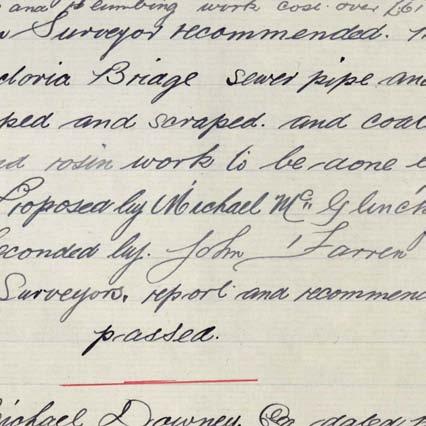 and Plumbing work cost over £6
Surveyor recommended.
ctoria Bridge sewer pipe an
ped and scraped. and coa
ed rosin work to be done
Proposed by Michael Mc Glinch
econded by. John Farren
Surveyors, report and recommen
passed.
ichael Downey. Co. dated